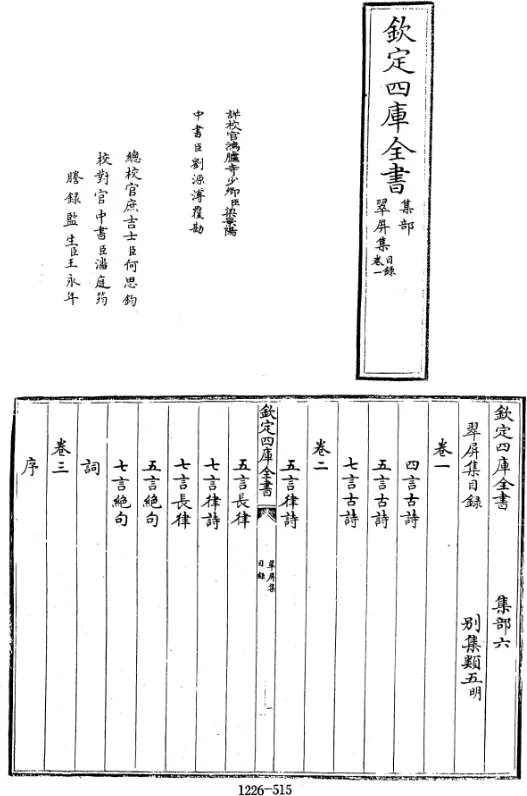 欽定四庫全書
集部
翠屏集
目錄
卷一
詳校官鴻臚寺少卿臣梁景陽
中書臣劉源溥覆勘
總校官庶吉士臣何思鈞
校對官中書臣潘庭筠
謄錄監生臣王永年
欽定四庫全書 集部六
翠屏集目錄 別集類五明
卷一
四言古詩
五言古詩
七言古詩
卷二
五言律詩
欽定四庫全書
翠屏集
目錄
一
五言長律
七言律詩
七言長律
五言絶句
七言絶句
詞
卷三
序
1226-515